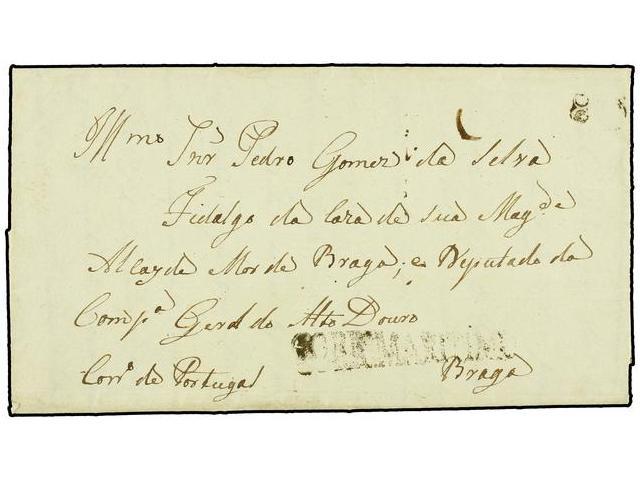 Illmo Snr Pedro Gomez da Selva
Fidalgo da Caza de sua Magde
Alcayde Mor de Braga, e Deputado da
Compa Geral do Alto Douro
CORR.MARITIM
Corro de Portugal Braga